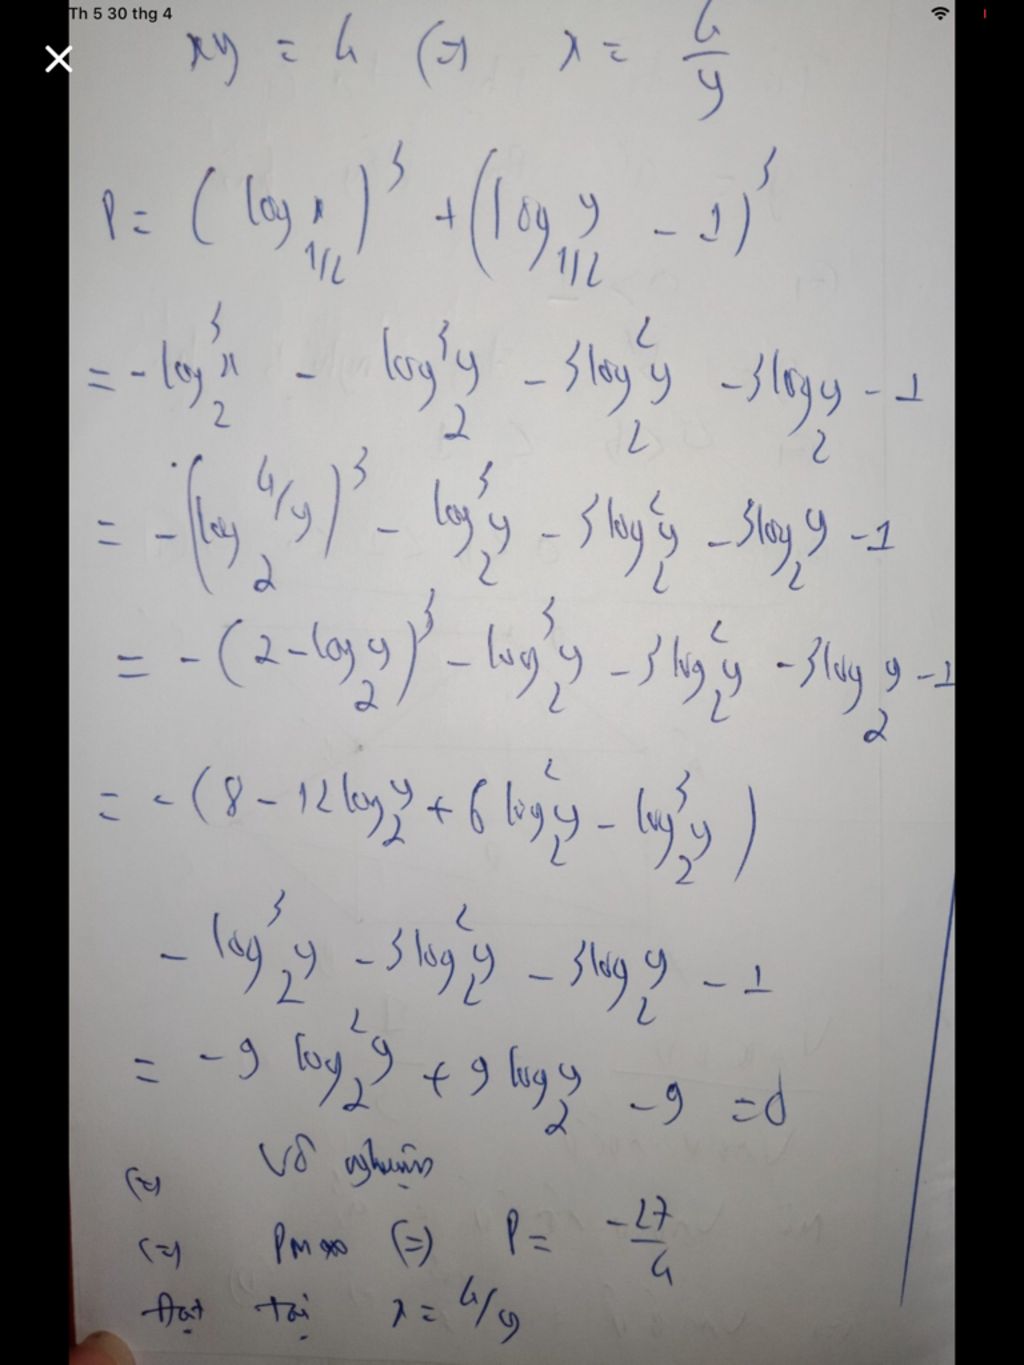 Th 5 30 thg 4
xy = 4 (=) x = 4/y
P = (log_{1/2} x)^3 + (log_{1/2} y - 1)^3
= - log_2^3 x - log_2^3 y - 3log_2^2 y - 3log_2 y - 1
= - (log_2 4/y)^3 - log_2^3 y - 3log_2^2 y - 3log_2 y - 1
= - (2 - log_2 y)^3 - log_2^3 y - 3log_2^2 y - 3log_2 y - 1
= - (8 - 12log_2 y + 6log_2^2 y - log_2^3 y)
- log_2^3 y - 3log_2^2 y - 3log_2 y - 1
= - 9 log_2^2 y + 9 log_2 y - 9 = 0
(=) Vô nghiệm
(=) Pmax (=) P = -27/4
Đạt tại x = 4/y